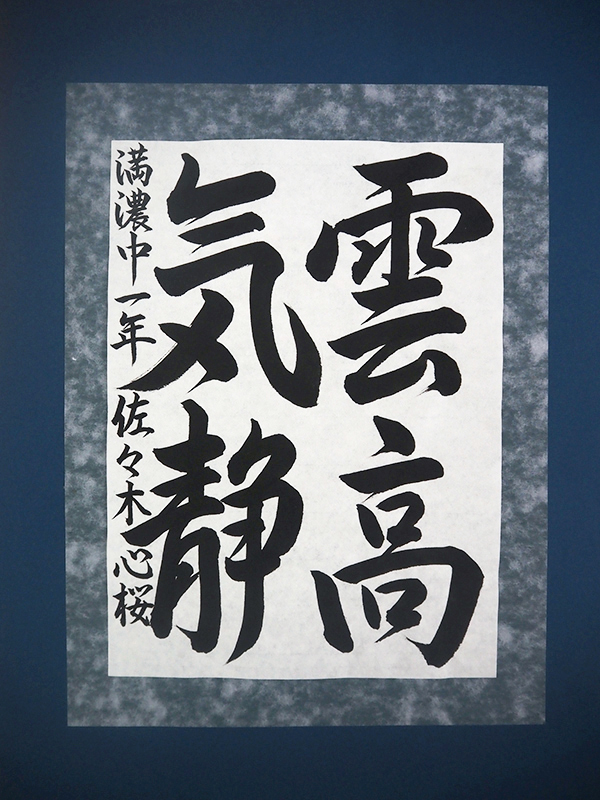 雲高
気静
満濃中一年 佐々木心桜